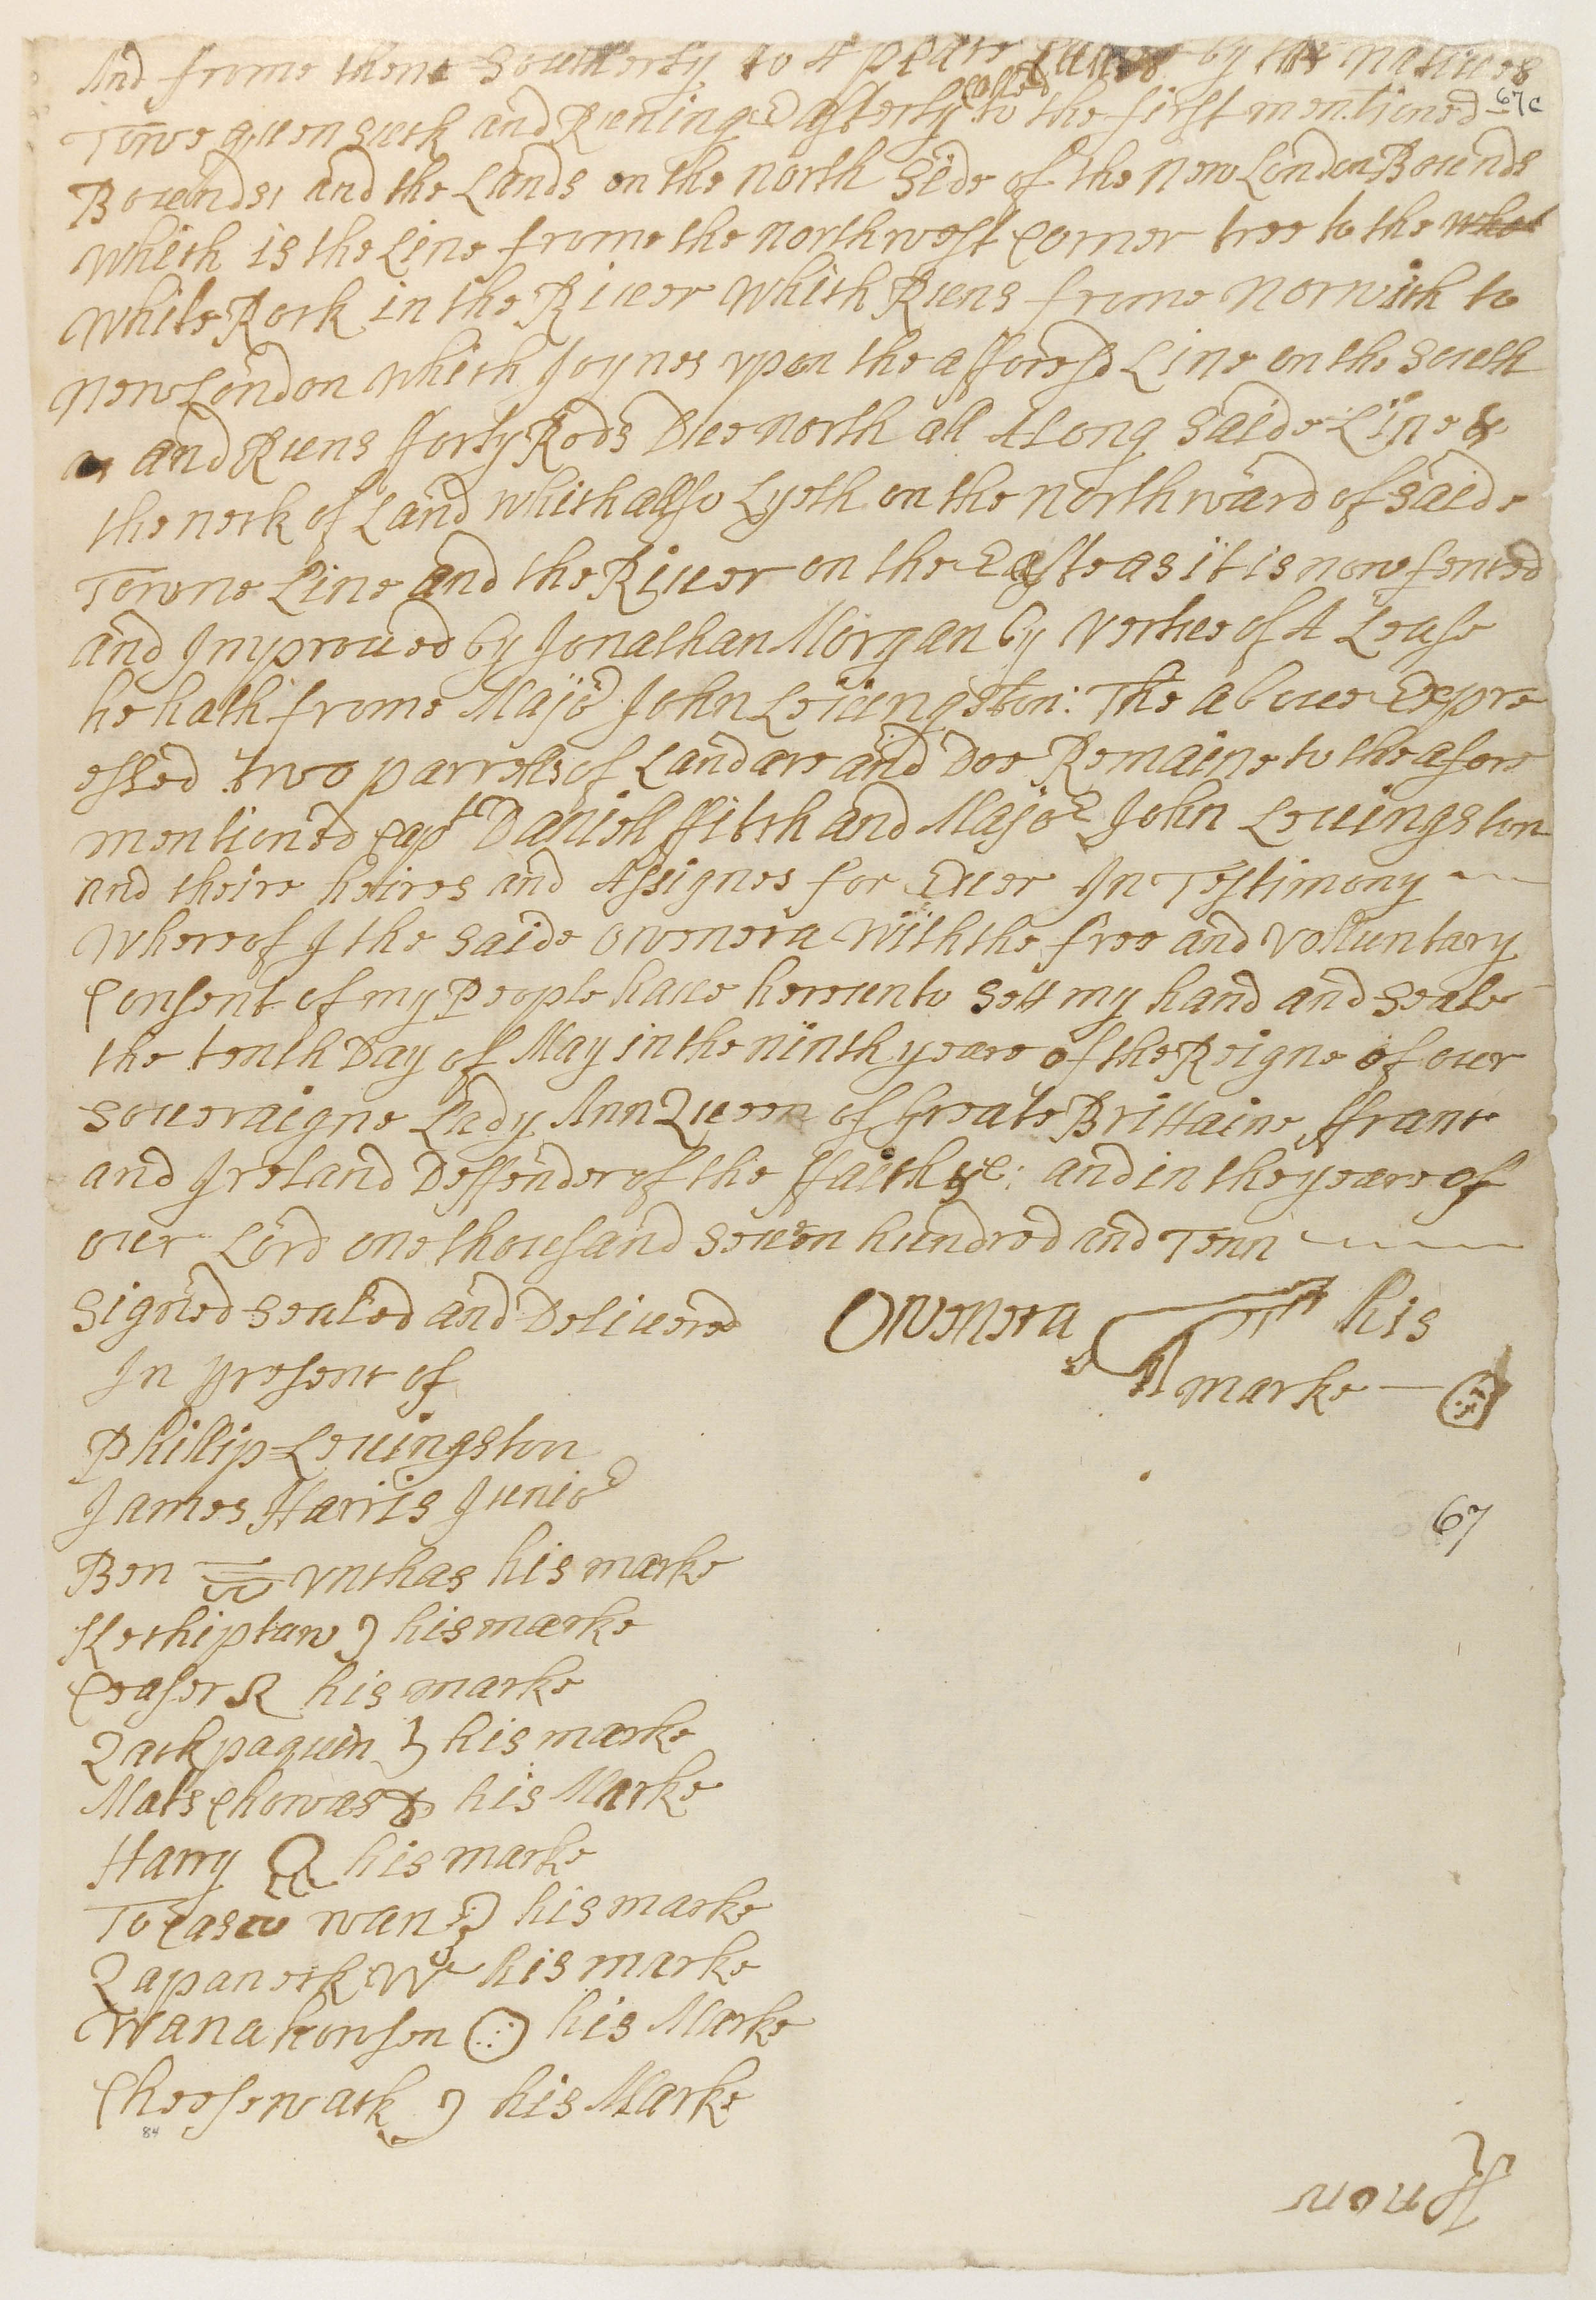 And frome thenc Southerly to A place by the natiues
called
67c
Towequensuck and Runing Easterly to the first mentioned
Bouends, and the Lands on the north Side of the New London Bounds
which is the Line frome the northwest Corner tree to the
white Rock in the Riuer which Runs frome Norwich to
New London which Joynes vpon the afforesd Line on the South
and Runs fforty Rods Due north all Along Saide Line &
the neck of Land which allso Lyeth on the northward of Saide
Towne Line and the Riuer on the Easte as it is now fenced
and Improued by Jonathan Morgan by vertue of A Lease
he hath frome Majör John Leuingston: The aboue Expre
essed two parcells of Land are and Doe Remaine to the afore
mentioned Capt Daniell ffitch and Major John Leuingston
and theire heires and Assignes for Euer In Testimony
whereof I the saide Oweneca with the free and Volluntary
Consent of my People haue hereunto Sett my hand and Seale
the tenth Day of May in the ninth yeare of the Reigne of ouer
Soueraigne Lady Ann Queen of Greate Brittaine, ffrance
and Ireland Deffender of the ffaith &c: and in the yeare of
ouer Lord one thousand Seuen hundred and Tenn
Signed Sealed and Deliuered
Oweneca his
marke
In presenc of
Phillip Leuingston
James Harris Junior
67
Ben Vnchas his marke
Kechiptaw his marke
Ceaser his marke
Qackpaquin his marke
Mats Chowas his Marke
Harry his marke
Tocas wan his marke
Qapaneck his marke
Wanahowson his Marke
Cheesewack his Marke
84